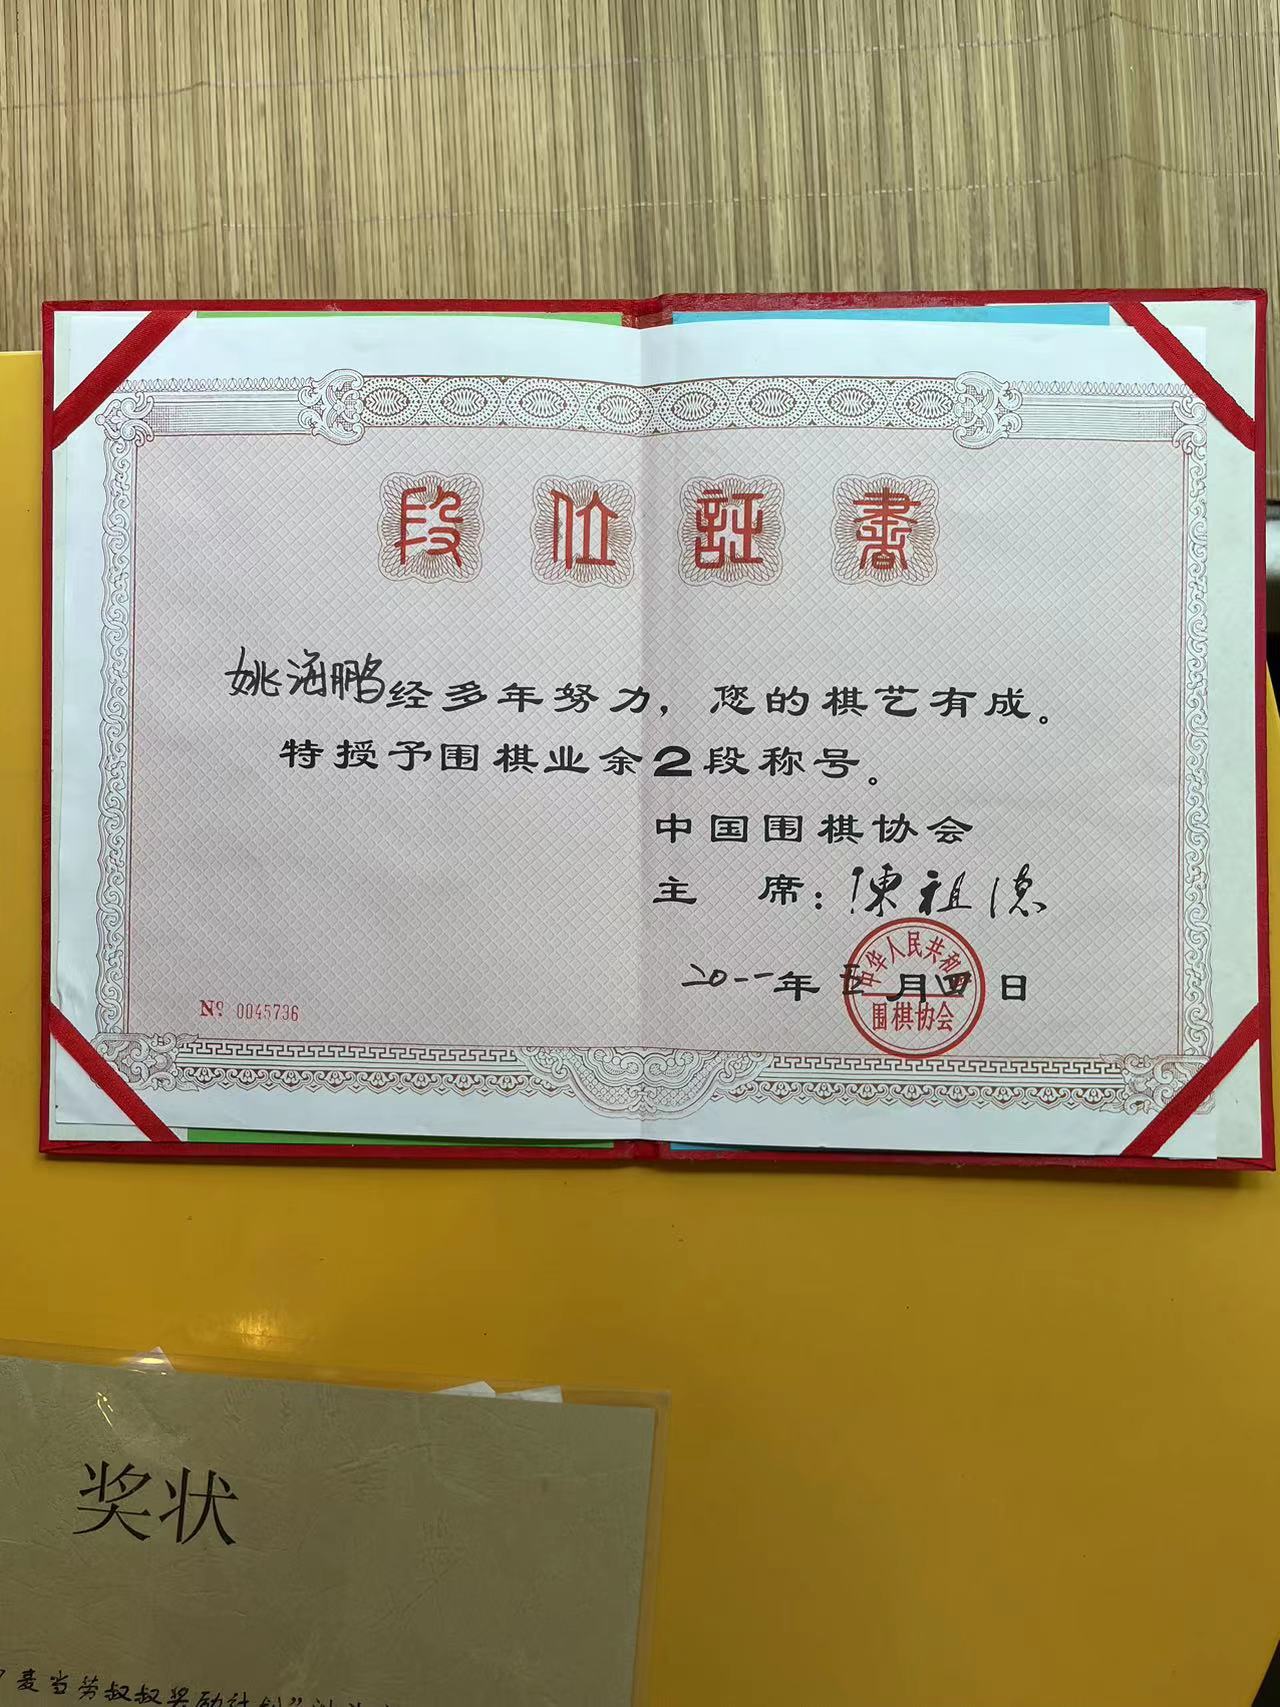 段位証書
姚海鹏经多年努力，您的棋艺有成。
特授予围棋业余2段称号。
中国围棋协会
主 席：陳祖德
二〇一一年五月四日
中华人民共和国
围棋协会
Nº 0045736
奖状
麦当劳叔叔奖励计划”